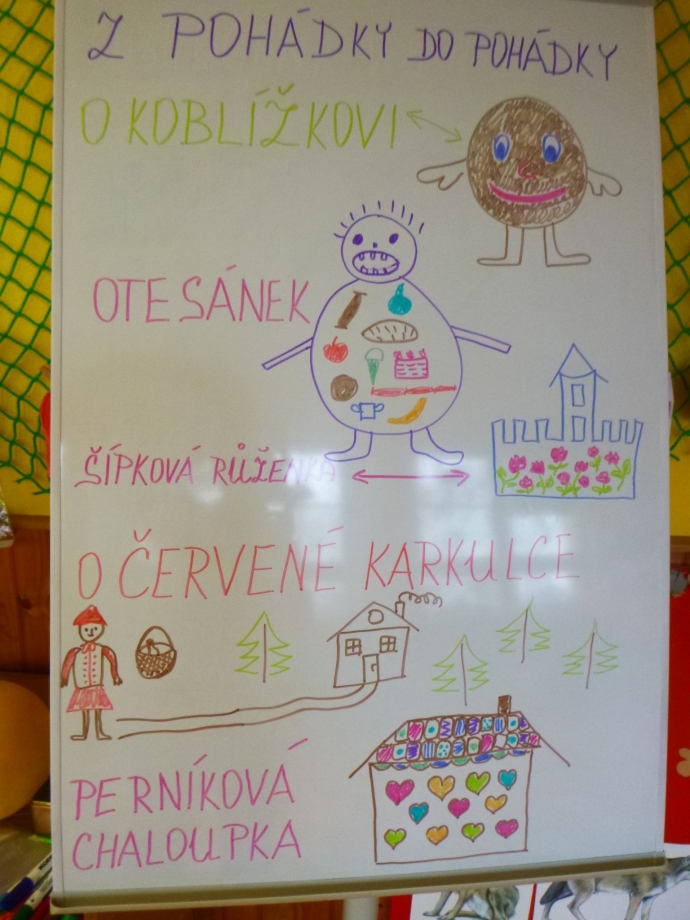 Z POHÁDKY DO POHÁDKY
O KOBLÍŽKOVI
OTESÁNEK
ŠÍPKOVÁ RŮŽENKA
O ČERVENÉ KARKULCE
PERNÍKOVÁ
CHALOUPKA